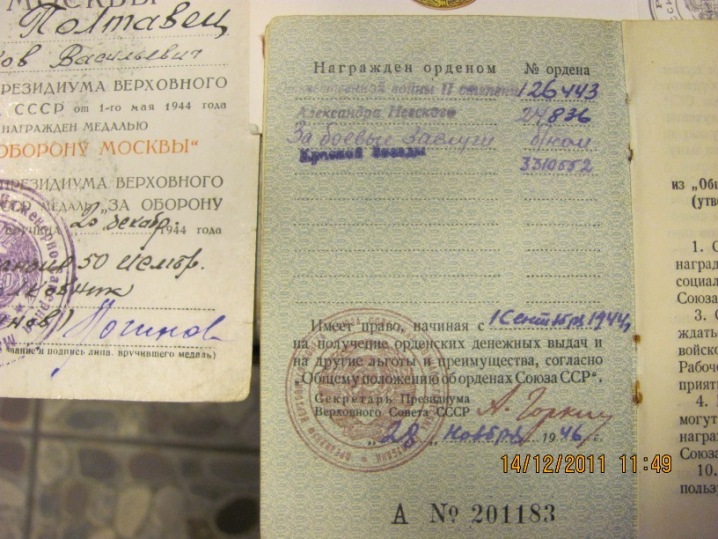 МОСКВЫ"
Полтавец
ков Васильевич
ПРЕЗИДИУМА ВЕРХОВНОГО
СССР от 1-го мая 1944 года
НАГРАЖДЕН МЕДАЛЬЮ
ОБОРОНУ МОСКВЫ"
ПРЕЗИДИУМА ВЕРХОВНОГО
СССР МЕДАЛЬ „ЗА ОБОРОНУ
вручена 20 декабр. 1944 года
50
Логинов
звание и подпись лица, вручившего медаль)
Награжден орденом № ордена
Отечественной войны II степени 126443
Александра Невского 24836
За боевые Заслуги б/ном
Красной Звезды 3310552
Имеет право, начиная с 1 Сентября 1944 г.
на получение орденских денежных выдач и
на другие льготы и преимущества, согласно
„Общему положению об орденах Союза ССР".
Секретарь Президиума
Верховного Совета СССР А. Горкин
„28" Ноября 1946 г.
А № 201183
из „Общ
(утве
1. С
наград
социал
Союза
3. С
ждать
войско
Рабоче
прият
4.
могут
награ
Союза
10.
польз
14/12/2011 11:49